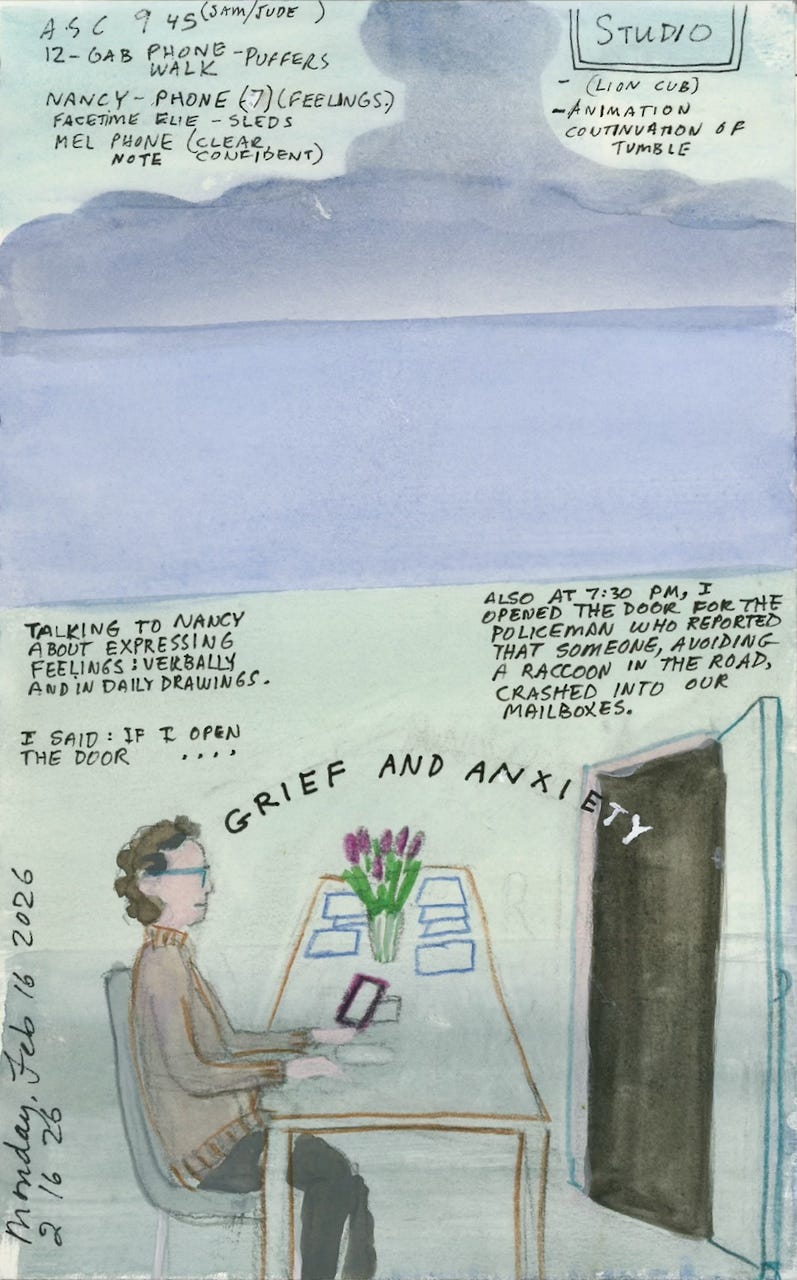 ASC 9 45 (SAM/JUDE)
12- GAB PHONE - PUFFERS
WALK
NANCY - PHONE (7) (FEELINGS)
FACETIME ELIE - SLEDS
MEL PHONE (CLEAR,
NOTE CONFIDENT)
STUDIO
- (LION CUB)
- ANIMATION
COUTINUATION OF
TUMBLE
TALKING TO NANCY
ABOUT EXPRESSING
FEELINGS: VERBALLY
AND IN DAILY DRAWINGS.
I SAID: IF I OPEN
THE DOOR ....
ALSO AT 7:30 PM, I
OPENED THE DOOR FOR THE
POLICEMAN WHO REPORTED
THAT SOMEONE, AVOIDING
A RACCOON IN THE ROAD,
CRASHED INTO OUR
MAILBOXES.
GRIEF AND ANXIETY
Monday, Feb 16 2026
2 16 26